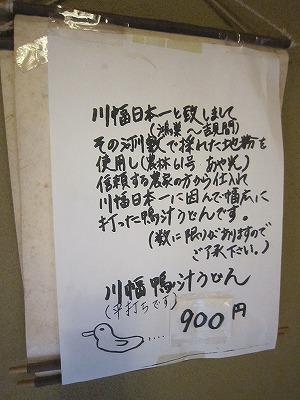 川幅日本一と致しまして
(鴻巣〜吉見間)
その河川敷で採れた地粉を
使用し(農林61号 あや光)
信頼する農家の方から仕入れ
川幅日本一に因んで幅広に
打った鴨汁うどんです。
(数に限りがありますので
ご了承下さい。)
川幅鴨汁うどん
(平打ちです)
900円